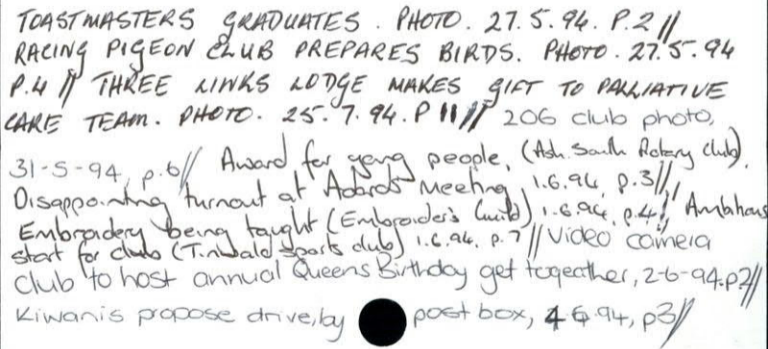 TOASTMASTERS GRADUATES. PHOTO. 27.5.94. P.2//
RACING PIGEON CLUB PREPARES BIRDS. PHOTO. 27.5.94
P.4 // THREE LINKS LODGE MAKES GIFT TO PALLIATIVE
CARE TEAM. PHOTO. 25.7.94. P 11// 206 club photo,
31-5-94, p.6// Award for young people, (Ash. South Rotary club),
Disappointing turnout at Meeting, 1.6.94, p.3//,
Embroidery being taught (Embroiders Guild) 1.6.94, p.4// Ambitious
start for club (Tinwald sports club) 1.6.94. p.7 // Video camera
club to host annual Queens Birthday get togeather, 2-6-94.p2//
Kiwanis propose drive, by post box, 4 6.94, p3//